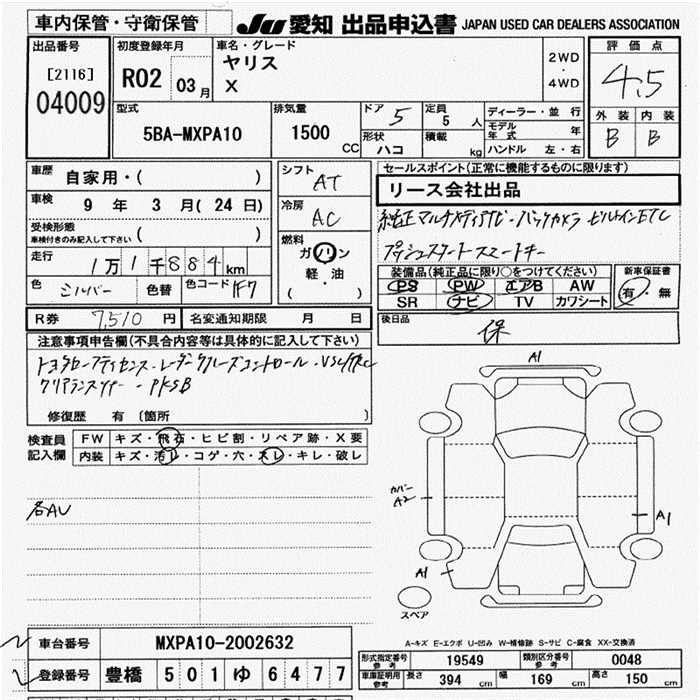 車内保管・守衛保管
JU 愛知 出品申込書 JAPAN USED CAR DEALERS ASSOCIATION
出品番号
[2116]
04009
初度登録年月
R02 03月
車名・グレード
ヤリス
X
2WD
・
4WD
評価点
4.5
外装 内装
B B
型式
5BA-MXPA10
排気量
1500 CC
ドア 5
形状 ハコ
定員 5 人
積載 kg
ディーラー・並行
モデル年式 年
ハンドル 左・右
車歴 自家用・( )
車検 9 年 3 月 ( 24 日)
受検形態
車検付きのみ記入して下さい ( )
走行 1万1千884km
色 シルバー 色替 色コード 1F7
シフト
AT
冷房
AC
燃料
ガソリン
軽・油
( )
セールスポイント(正常に機能するものに限ります)
リース会社出品
純正マルチメディアナビ・バックカメラ ビルトインETC
プッシュスタートスマートキー
装備品(純正品に限り○をつけてください)
PS PW エアB AW
SR ナビ TV カワシート
新車保証書
有・無
後日品
保
R券 7,510円 名変通知期限 月 日
注意事項申告欄(不具合内容等は具体的に記入して下さい)
トヨタセーフティセンス・レーダークルーズコントロール・VSC/TRC
クリアランスソナー・PKSB
修復歴 有 (箇所 )
検査員記入欄
FW キズ・飛石・ヒビ割・リペア跡・X要
内装 キズ・汚レ・コゲ・穴・スレ・キレ・破レ
各AU
A1
カバー
A2
A1
A1
スペア
A-キズ E-エクボ U-凹み W-補修跡 S-サビ C-腐食 XX-交換済
車台番号 MXPA10-2002632
登録番号 豊橋 501 ゆ 6477
形式指定番号 参考 19549 類別区分番号 参考 0048
車庫証明用 参考 長さ 394 cm 幅 169 cm 高さ 150 cm